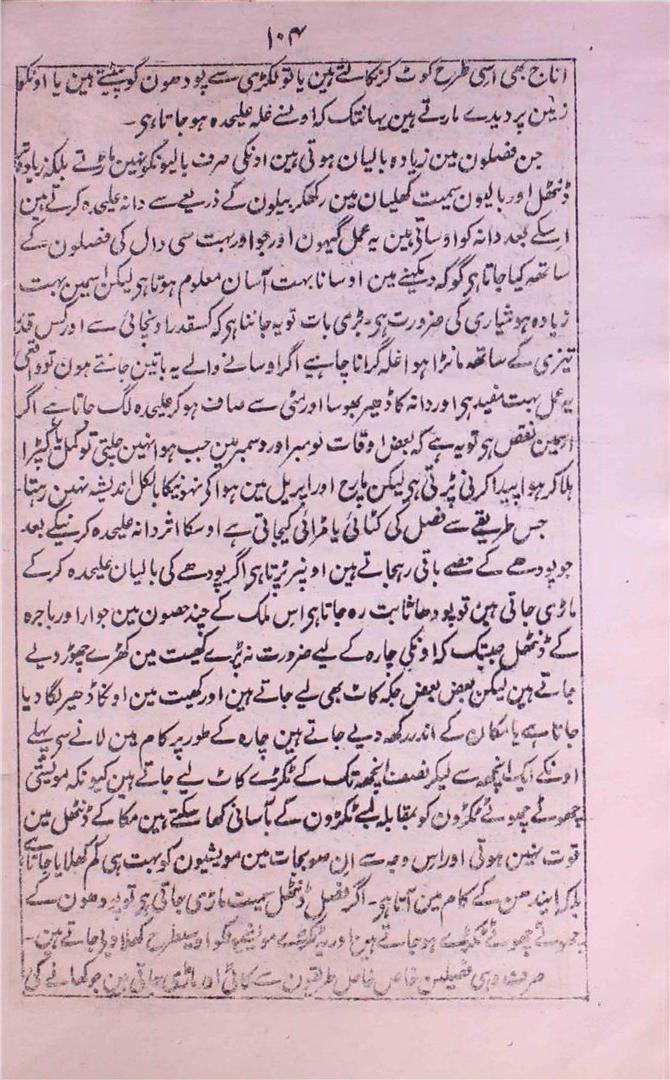 ۱۰۴
اناج بھی اسی طرح کوٹ کر نکالتے ہین یا تو لکڑی سے پودھون کو پیٹتے ہین یا اونکو
زمین پر دیدے مارتے ہین یہانتک کہ اونسے غلہ علیحدہ ہوجاتا ہی۔
جن فصلون مین زیادہ بالیان ہوتی ہین اونکی صرف بالیونکو نہین ماڑتے بلکہ زیادہ تر
ڈنٹھل اور بالیون سمیت کھلیان مین رکھکر بیلون کے ذریعے سے دانہ علیحدہ کرتے ہین
اسکے بعد دانہ کو اوساتی ہین یہ عمل گیہون اور جو اور بہت سی دال کی فصلون کے
ساتھ کیا جاتا ہی گو کہ دیکھنے مین اوسانا بہت آسان معلوم ہوتا ہی لیکن اسمین بہت
زیادہ ہوشیاری کی ضرورت ہی۔ بڑی بات تو یہ جاننا ہی کہ کسقدر اونچائی سے اور کس قدر
تیزی کے ساتھ مانڑا ہوا غلہ گرانا چاہیے اگر اوسانے والے یہ باتین جانتے ہون تو واقعی
یہ عمل بہت مفید ہی اور دانہ کا ڈھیر بھوسا اور مٹی سے صاف ہوکر علیحدہ لگ جاتا ہے اگر
اسمین نقص ہی تو یہ ہے کہ بعض اوقات نومبر اور دسمبر مین جب ہوا نہین چلتی تو کمل یا کپڑا
ہلا کر ہوا پیدا کرنی پڑتی ہی لیکن مارچ اور اپریل مین ہوا کی نہونیکا بالکل اندیشہ نہین رہتا
جس طریقے سے فصل کی کٹائی یا مڑائی کیجاتی ہے اوسکا اثر دانہ علیحدہ کرنیکے بعد
جو پودھے کے حصے باقی رہجاتے ہین اونپر پڑتا ہی اگر پودھے کی بالیان علیحدہ کرکے
ماڑی جاتی ہین تو پودھا ثابت رہ جاتا ہی اس ملک کے چند حصون مین جوار اور باجرہ
کے ڈنٹھل جبتک کہ اونکی چارہ کے لیے ضرورت نہ پڑے کھیت مین کھڑے چھوڑ دیے
جاتے ہین لیکن بعض بعض جگہ کاٹ بھی لیے جاتے ہین اور کھیت مین اونکا ڈھیر لگا دیا
جاتا ہے یا مکان کے اندر رکھ دیے جاتے ہین چارہ کے طور پر کام مین لانے سے پہلے
اونکے ایک انچھ سے لیکر نصف انچھ تک کے ٹکڑے کاٹ لیے جاتے ہین کیونکہ مویشی
چھوٹے چھوٹے ٹکڑون کو بمقابلہ لمبے ٹکڑون کے بآسانی کھا سکتے ہین مکا کے ڈنٹھل مین
قوت نہین ہوتی اور اس وجہ سے ان صوبجات مین مویشیون کو بہت ہی کم کھلایا جاتا ہے
بلکہ ایندھن کے کام مین آتا ہی۔ اگر فصل ڈنٹھل سمیت ماڑی جاتی ہی تو پودھون کے
چھوٹے چھوٹے ٹکڑے ہوجاتے ہین اور یہ ٹکڑے مویشیونکو اوسیطرح کھلا دیے جاتے ہین۔
صرف وہی فصلین خاص خاص طریقون سے کاٹی اور ماڑی جاتی ہین جو کھانے کی